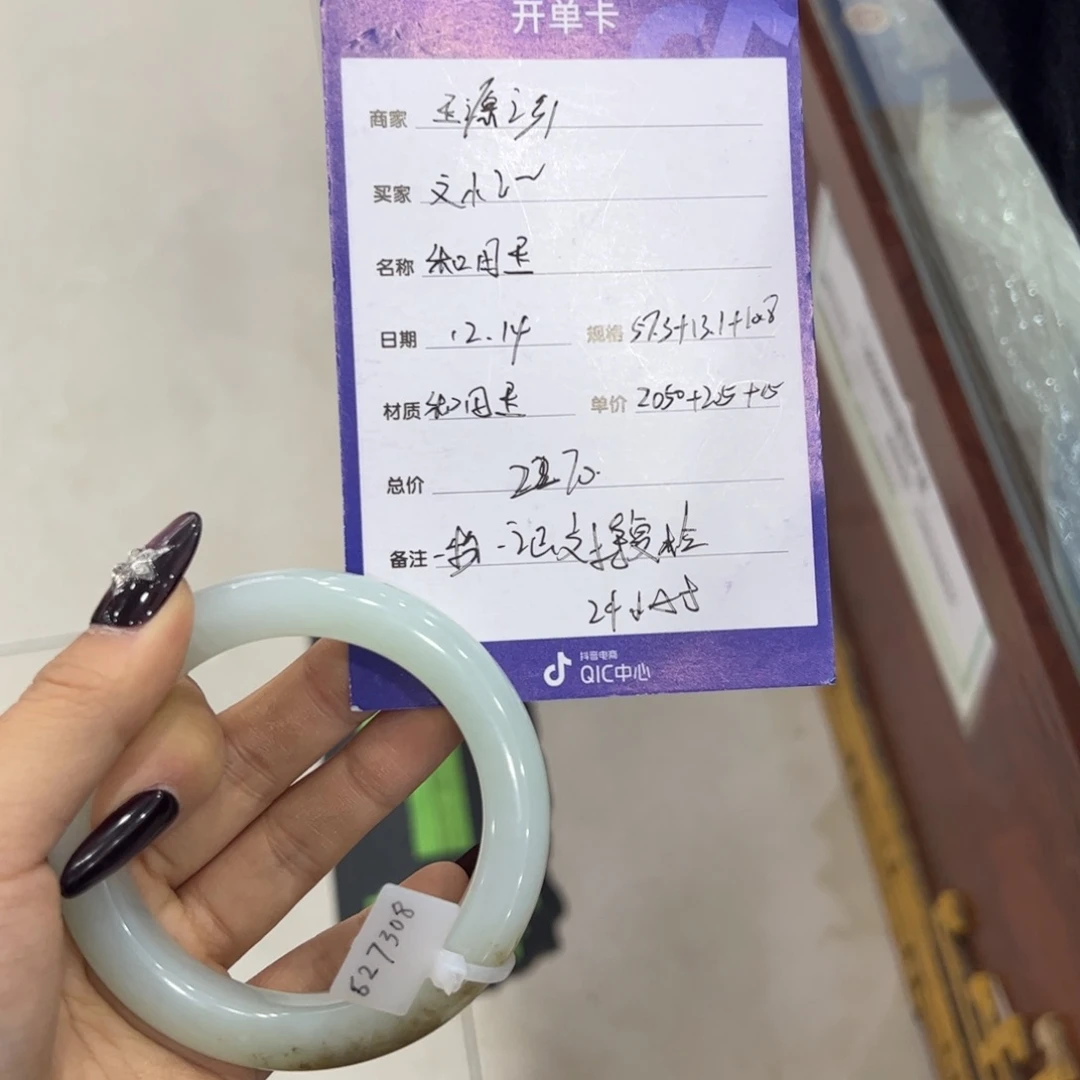 开单卡
商家 玉源之引
买家 文水2~
名称 和田玉
日期 12.14 规格 57.3+13.1+10.8
材质 和田玉 单价 2050+205+15
总价 2270.
备注 一物一证支持复检
24小时
抖音电商
QIC中心
627308